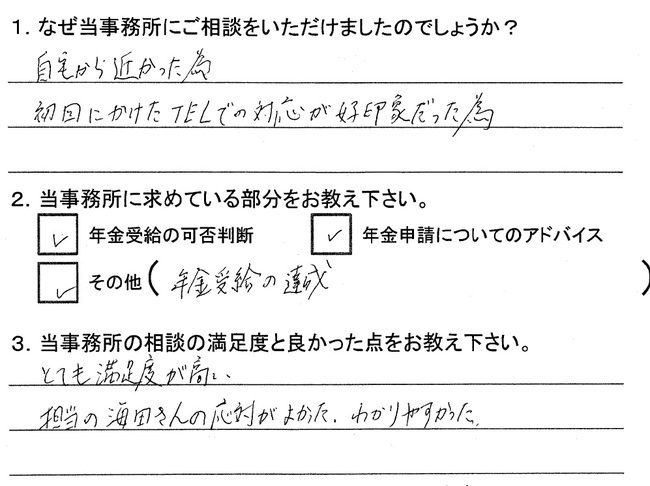 1. なぜ当事務所にご相談をいただけましたのでしょうか？
自宅から近かった為
初回にかけたTELでの対応が好印象だった為
2. 当事務所に求めている部分をお教え下さい。
年金受給の可否判断 年金申請についてのアドバイス
その他（年金受給の達成）
3. 当事務所の相談の満足度と良かった点をお教え下さい。
とても満足度が高い、
担当の海田さんの応対がよかった。わかりやすかった。